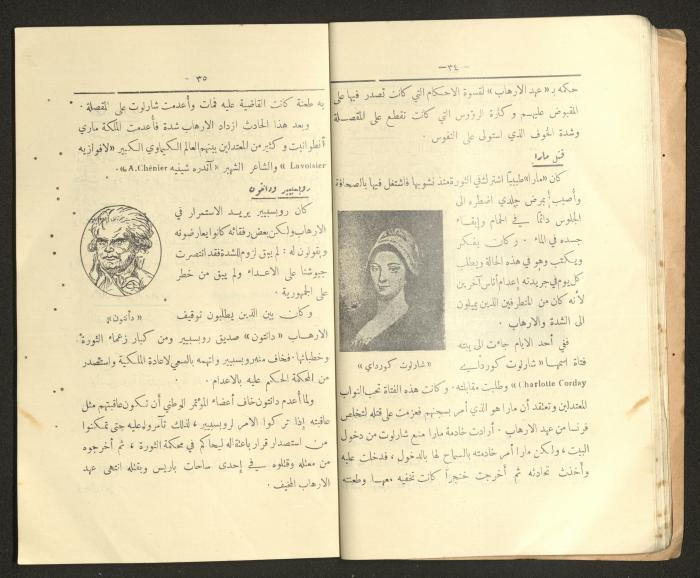 — ٣٤ —
حكمه بـ «عهد الارهاب» لقسوة الاحكام التي كانت تصدر فيها على
المقبوض عليهم وكثرة الرؤوس التي كانت تقطع على المقصلة
وشدة الخوف الذي استولى على النفوس .
قتل مارا
كان «مارا» طبيبًا اشترك في الثورة منذ نشوبها فاشتغل فيها بالصحافة
وأصيب بمرض جلدي اضطره الى
الجلوس دائمًا في الحمام وإبقاء
جسده في الماء . وكان يفكر
ويكتب وهو في هذه الحالة ويطلب
كل يوم في جريدته إعدام أناس آخرين
لأنه كان من المتطرفين الذين يميلون
الى الشدة والارهاب .
ففي أحد الايام جاءت الى بيته
فتاة اسمها «شارلوت كورداي
«شارلوت كورداي»
Charlotte Corday» وطلبت مقابلته . وكانت هذه الفتاة تحب النواب
المعتدلين وتعتقد أن مارا هو الذي أمر بسجنهم فعزمت على قتله لتخلص
فرنسا من عهد الارهاب . أرادت خادمة مارا منع شارلوت من دخول
البيت ، ولكن مارا أمر خادمته بالسماح لها بالدخول ، فدخلت عليه
وأخذت تحادثه ثم أخرجت خنجراً كانت تخفيه معها وطعنته
٣٥ -
به طعنة كانت القاضية عليه فمات وأعدمت شارلوت على المقصلة .
وبعد هذا الحادث ازداد الارهاب شدة فأعدمت الملكة ماري
أنطوانيت وكثير من المعتدلين بينهم العالم الكيماوي الكبير «لافوازيه
Lavoisier» والشاعر الشهير «آندره شينيه A.Chénier» .
روبسبيير ودانتون
كان روبسبيير يريد الاستمرار في
الارهاب ولكن بعض رفقائه كانوا يعارضونه
ويقولون له : لم يبق لزوم للشدة فقد انتصرت
جيوشنا على الاعداء ولم يبق من خطر
على الجمهورية .
وكان بين الذين يطلبون توقيف
«دانتون»
الارهاب «دانتون» صديق روبسبيير ومن كبار زعماء الثورة
وخطبائها . فخاف منه روبسبيير واتهمه بالسعي لاعادة الملكية واستصدر
من المحكمة الحكم عليه بالاعدام .
ولما أعدم دانتون خاف أعضاء المؤتمر الوطني أن تكون عاقبتهم مثل
عاقبته إذا تركوا الامر لروبسبيير ، لذلك تآمروا عليه حتى تمكنوا
من استصدار قرار باعتقاله ليحاكم في محكمة الثورة ، ثم أخرجوه
من معتقله وقتلوه في إحدى ساحات باريس وبقتله انتهى عهد
الارهاب المخيف .